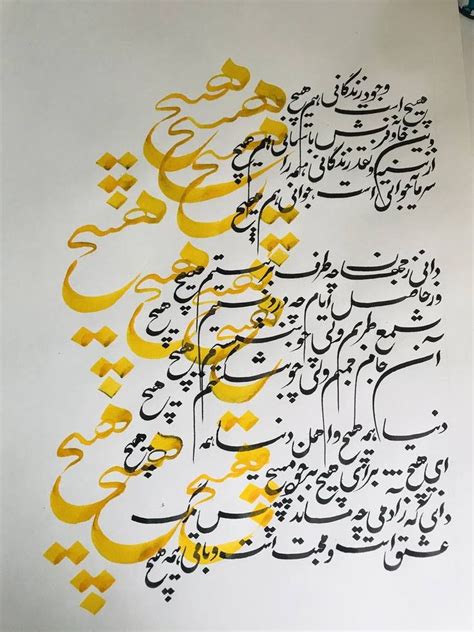 هیچ است وجود زندگانی هم هیچ
وین خانه و فرش باستانی هم هیچ
از نسیه و نقد زندگانی همه را
سرمایه جوانی است جوانی هم هیچ
دانی ز جهان چه طرف بربستم هیچ
وز حاصل ایام چه در دستم هیچ
شمع طربم ولی چو بنشستم هیچ
آن جام جمم ولی چو بشکستم هیچ
دنیا همه هیچ و اهل دنیا همه هیچ
ای هیچ برای هیچ بر هیچ مپیچ
دانی که از آدمی چه ماند پس مرگ
عشق است و محبت است و باقی همه هیچ
هیچ
هیچ
هیچ
هیچ
هیچ
هیچ
هیچ
هیچ
هیچ